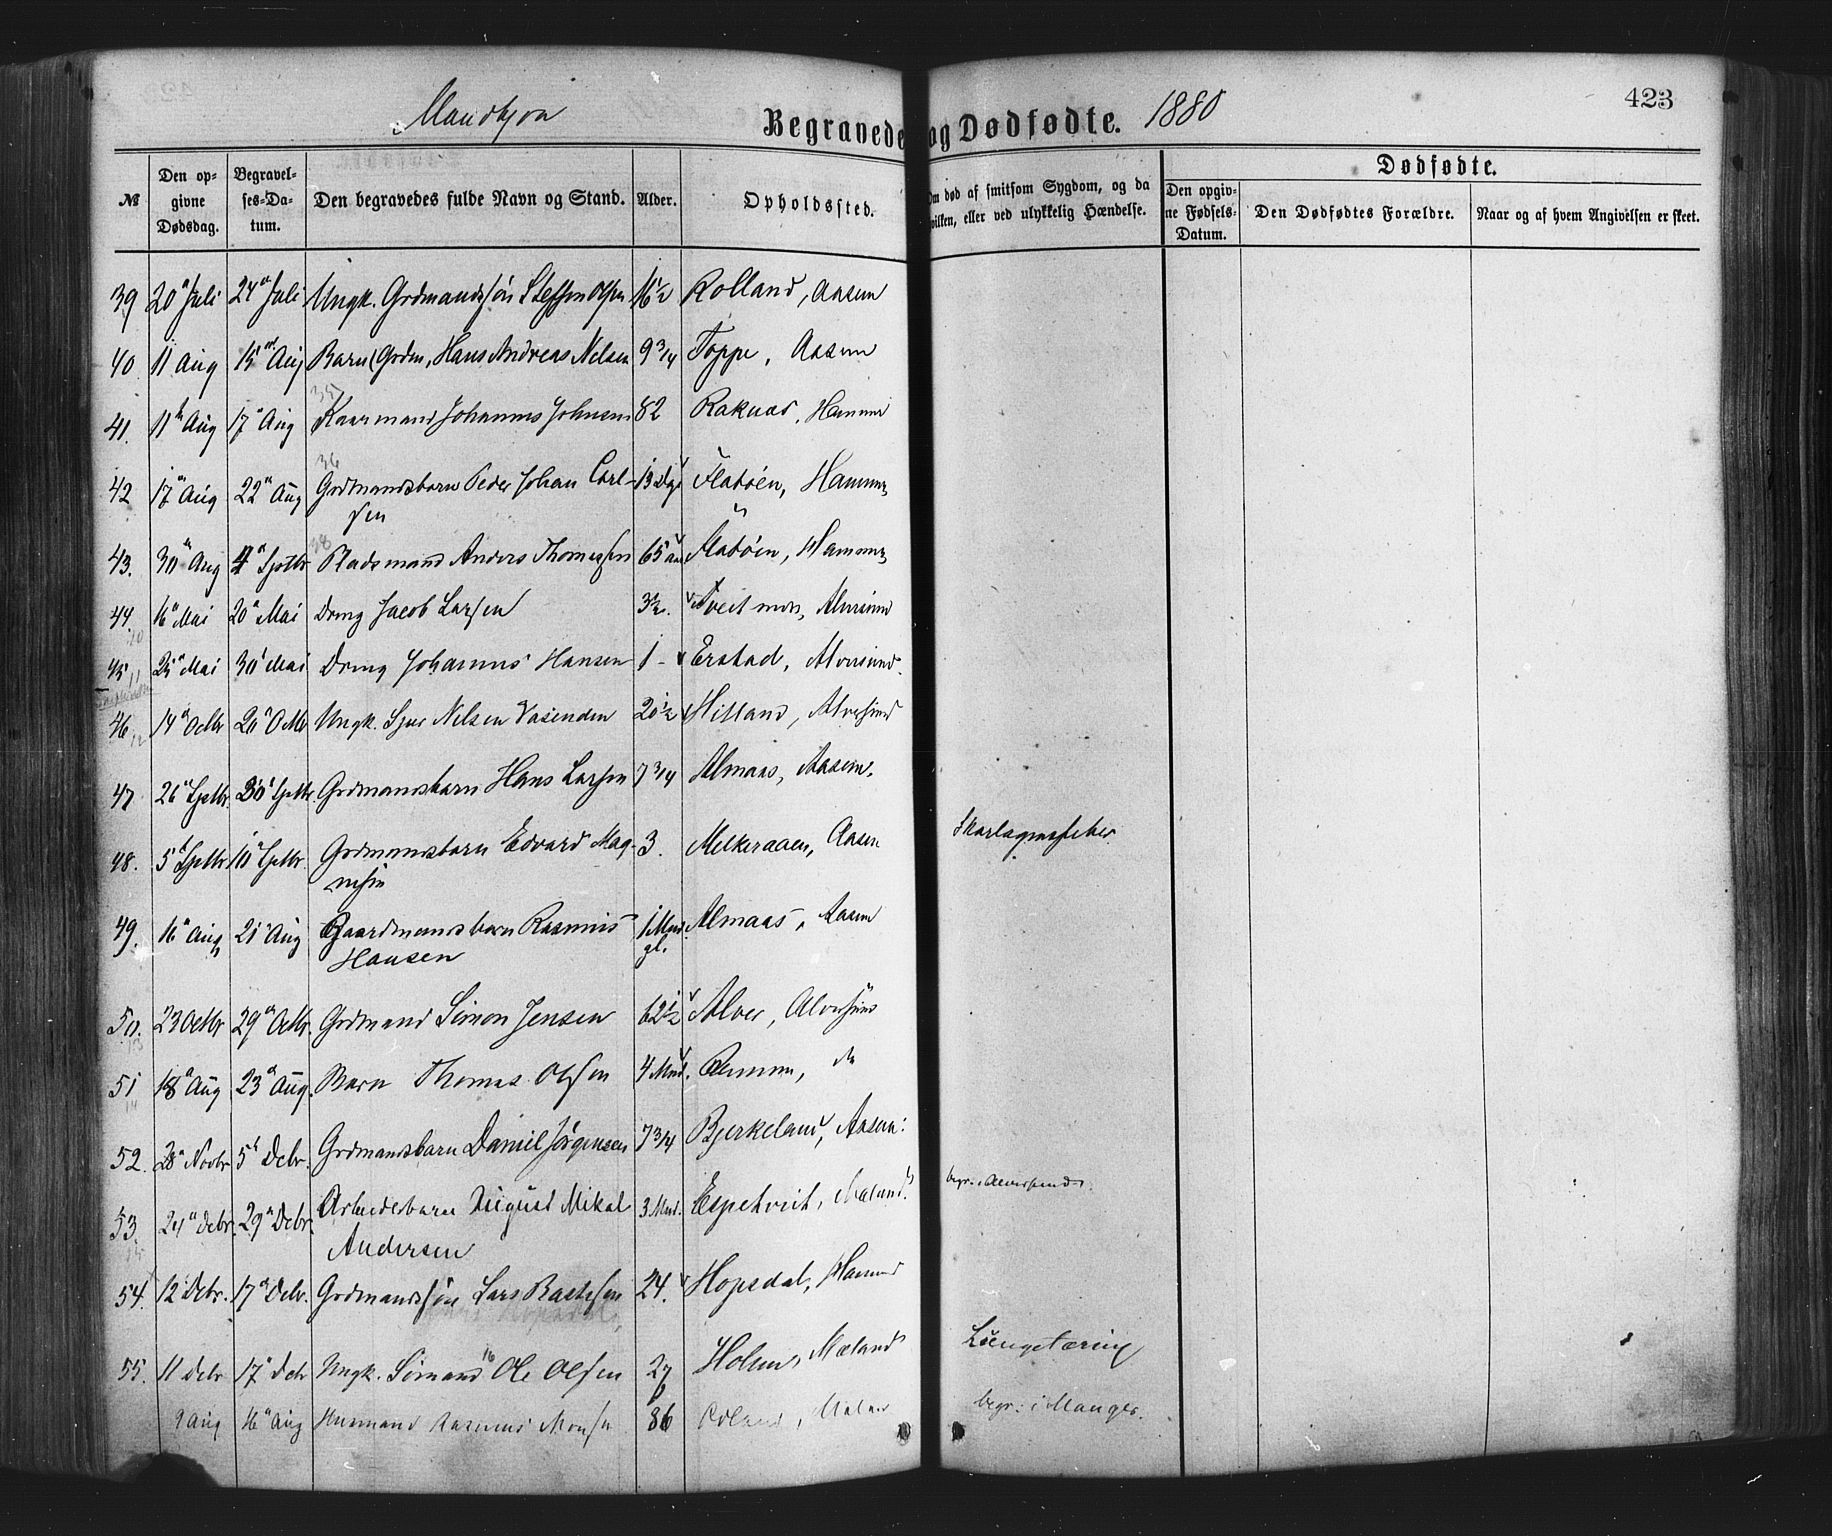 Mandkjøn
Begravede og Dødfødte. 1880
423
№
Den opgivne Dødsdag.
Begravelses-Datum.
Den begravedes fulde Navn og Stand.
Alder.
Opholdssted.
Om død af smitsom Sygdom, og da hvilken, eller ved ulykkelig Hændelse.
Dødfødte.
Den opgivne Fødsels-Datum.
Den Dødfødtes Forældre.
Naar og af hvem Angivelsen er skeet.
39 20 Juli 24 Juli Ungk. Grdmandssøn Steffen Olsen 16½ Rolland, Aasene
40 11 Aug 15 Aug Barn (Grdm, Hans Andreas Nelsen 9 3/4 Toppe, Aasene
35
41. 11 Aug 17 Aug Kaarmand Johannes Johnsen 82 Raknes, Hammer
36
42 17 Aug 22 Aug Grdmandsbarn Peder Johan Carl- 13 Dge Flatøen, Hammer
sen
38
43. 30 Aug 4 Septbr Pladsmand Anders Thomassen 65 Flatøen, Hammer
44. 16 Mai 20 Mai Dreng Jacob Larsen 3½. Tveit, Alversund
10
45 25 Mai 30 Mai Dreng Johannes Hansen 1 - Erstad, Alversund.
11
46 14 Octbr 20 Octbr Ungk. Sjur Nelsen Vasenden 20½ Hilland, Alversund
12
47 26 Septbr. 30 Septbr. Grdmandsbarn Hans Larsen 7 3/4 Almaas, Aasene.
48. 5 Septbr 10 Septbr. Grdmandsbarn Edvard Mag- 3. Melkeraaen, Aasene Skarlagensfeber.
nesen
49. 16 Aug 21 Aug Gaardmandsbarn Rasmus 1 Mnd. Almaas, Aasene
Hansen gl.
50. 23 Octbr 29 Octbr. Grdmand Simon Jensen 62½ Alver, Alversund
13
51 18 Aug 23 Aug. Barn Thomas Olsen 4 Mnd. do
14
52. 28 Novbr 5 Debr. Grdmandsbarn Daniel Jørgensen 7 3/4 Bjerkeland, Aasene:
53. 24 Debr. 29 Debr. Arbeidesbarn August Mikal 3 Mnd. Espetveit, Mæland. begr. i Alversund.
15
Andersen
54. 12 Debr. 17 Debr. Grdmandssøn Lars Bastesen 24. Hopsdal, Hammer
55. 11 Debr 17 Debr Ungk. Sømand Ole Olsen 27 Holme, Mæland Lungetæring
16
9 Aug 16 Aug Husmand Rasmus Monsen 86 begr: i Manger.